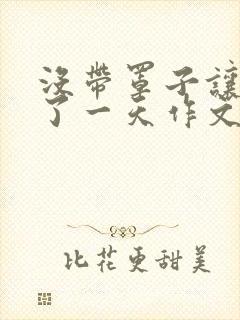 没带罩子讓
了一天作文
比花更甜美